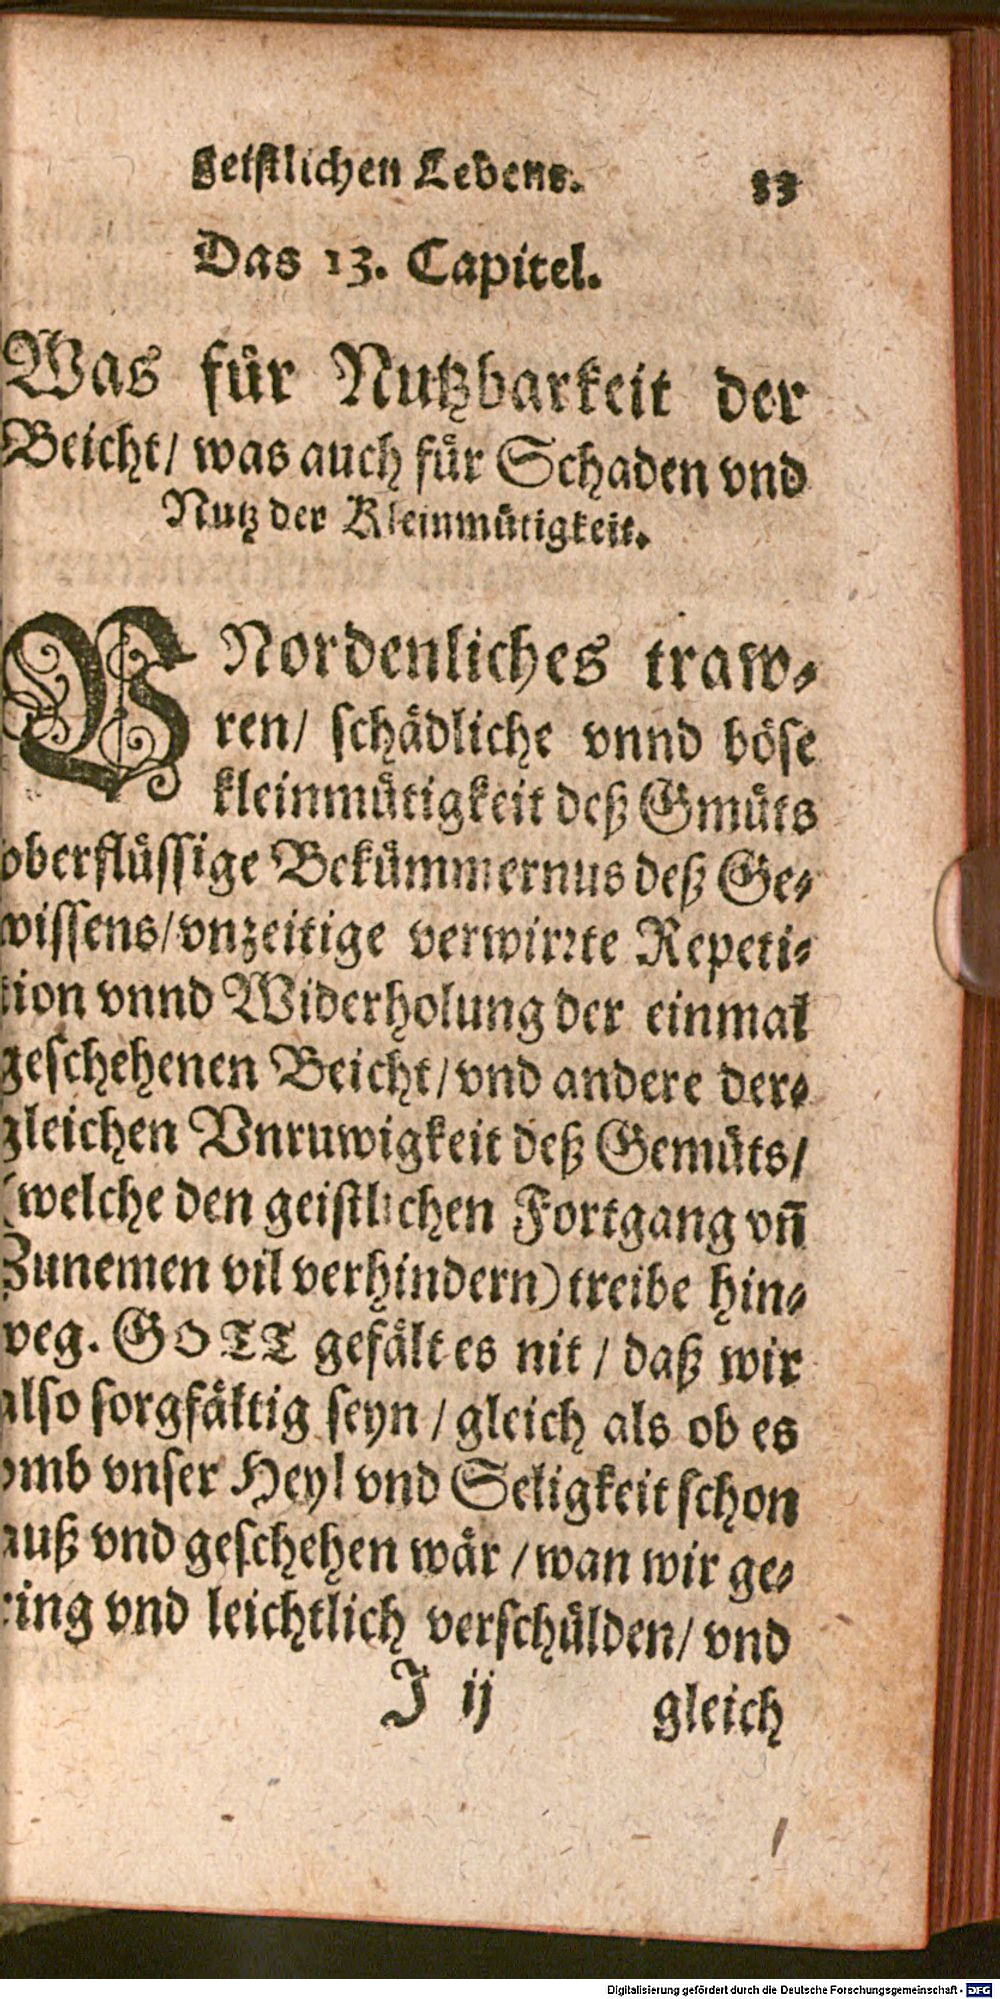 geistlichen Lebens. 33
Das 13. Capitel.
Was für Nutzbarkeit der
Beicht/ was auch für Schaden vnd
Nutz der Kleinmütigkeit.
VNordenliches traw⸗
ren/ schädliche vnnd böse
kleinmütigkeit deß Gmüts
oberflüssige Bekümmernus deß Ge⸗
wissens/vnzeitige verwirrte Repeti⸗
tion vnnd Widerholung der einmal
geschehenen Beicht/ vnd andere der⸗
gleichen Vnruwigkeit deß Gemüts/
(welche den geistlichen Fortgang vñ
Zunemen vil verhindern) treibe hin⸗
weg. GOTT gefält es nit / daß wir
also sorgfältig seyn / gleich als ob es
vmb vnser Heyl vnd Seligkeit schon
auß vnd geschehen wär / wan wir ge⸗
ring vnd leichtlich verschülden/ vnd
J ij gleich
Digitalisierung gefördert durch die Deutsche Forschungsgemeinschaft - DFG